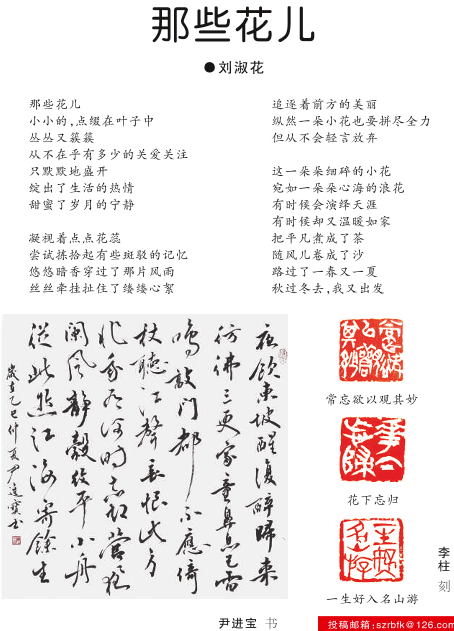 那些花儿
●刘淑花
那些花儿
小小的,点缀在叶子中
丛丛又簇簇
从不在乎有多少的关爱关注
只默默地盛开
绽出了生活的热情
甜蜜了岁月的宁静
凝视着点点花蕊
尝试拣拾起有些斑驳的记忆
悠悠暗香穿过了那片风雨
丝丝牵挂扯住了缕缕心絮
追逐着前方的美丽
纵然一朵小花也要拼尽全力
但从不会轻言放弃
这一朵朵细碎的小花
宛如一朵朵心海的浪花
有时候会演绎天涯
有时候却又温暖如家
把平凡煮成了茶
随风儿卷成了沙
路过了一春又一夏
秋过冬去,我又出发
夜飲東坡醒復醉歸來
彷彿三更家童鼻息已雷
鳴敲門都不應倚
杖聽江聲長恨此身
非我有何時忘却營營夜
闌風靜縠紋平小舟
從此逝江海寄餘生
歲在乙巳仲夏尹進寶書
尹进宝 书
常忘欲以观其妙
花下忘归
一生好入名山游
李柱 刻
投稿邮箱:szrbfk@126.com